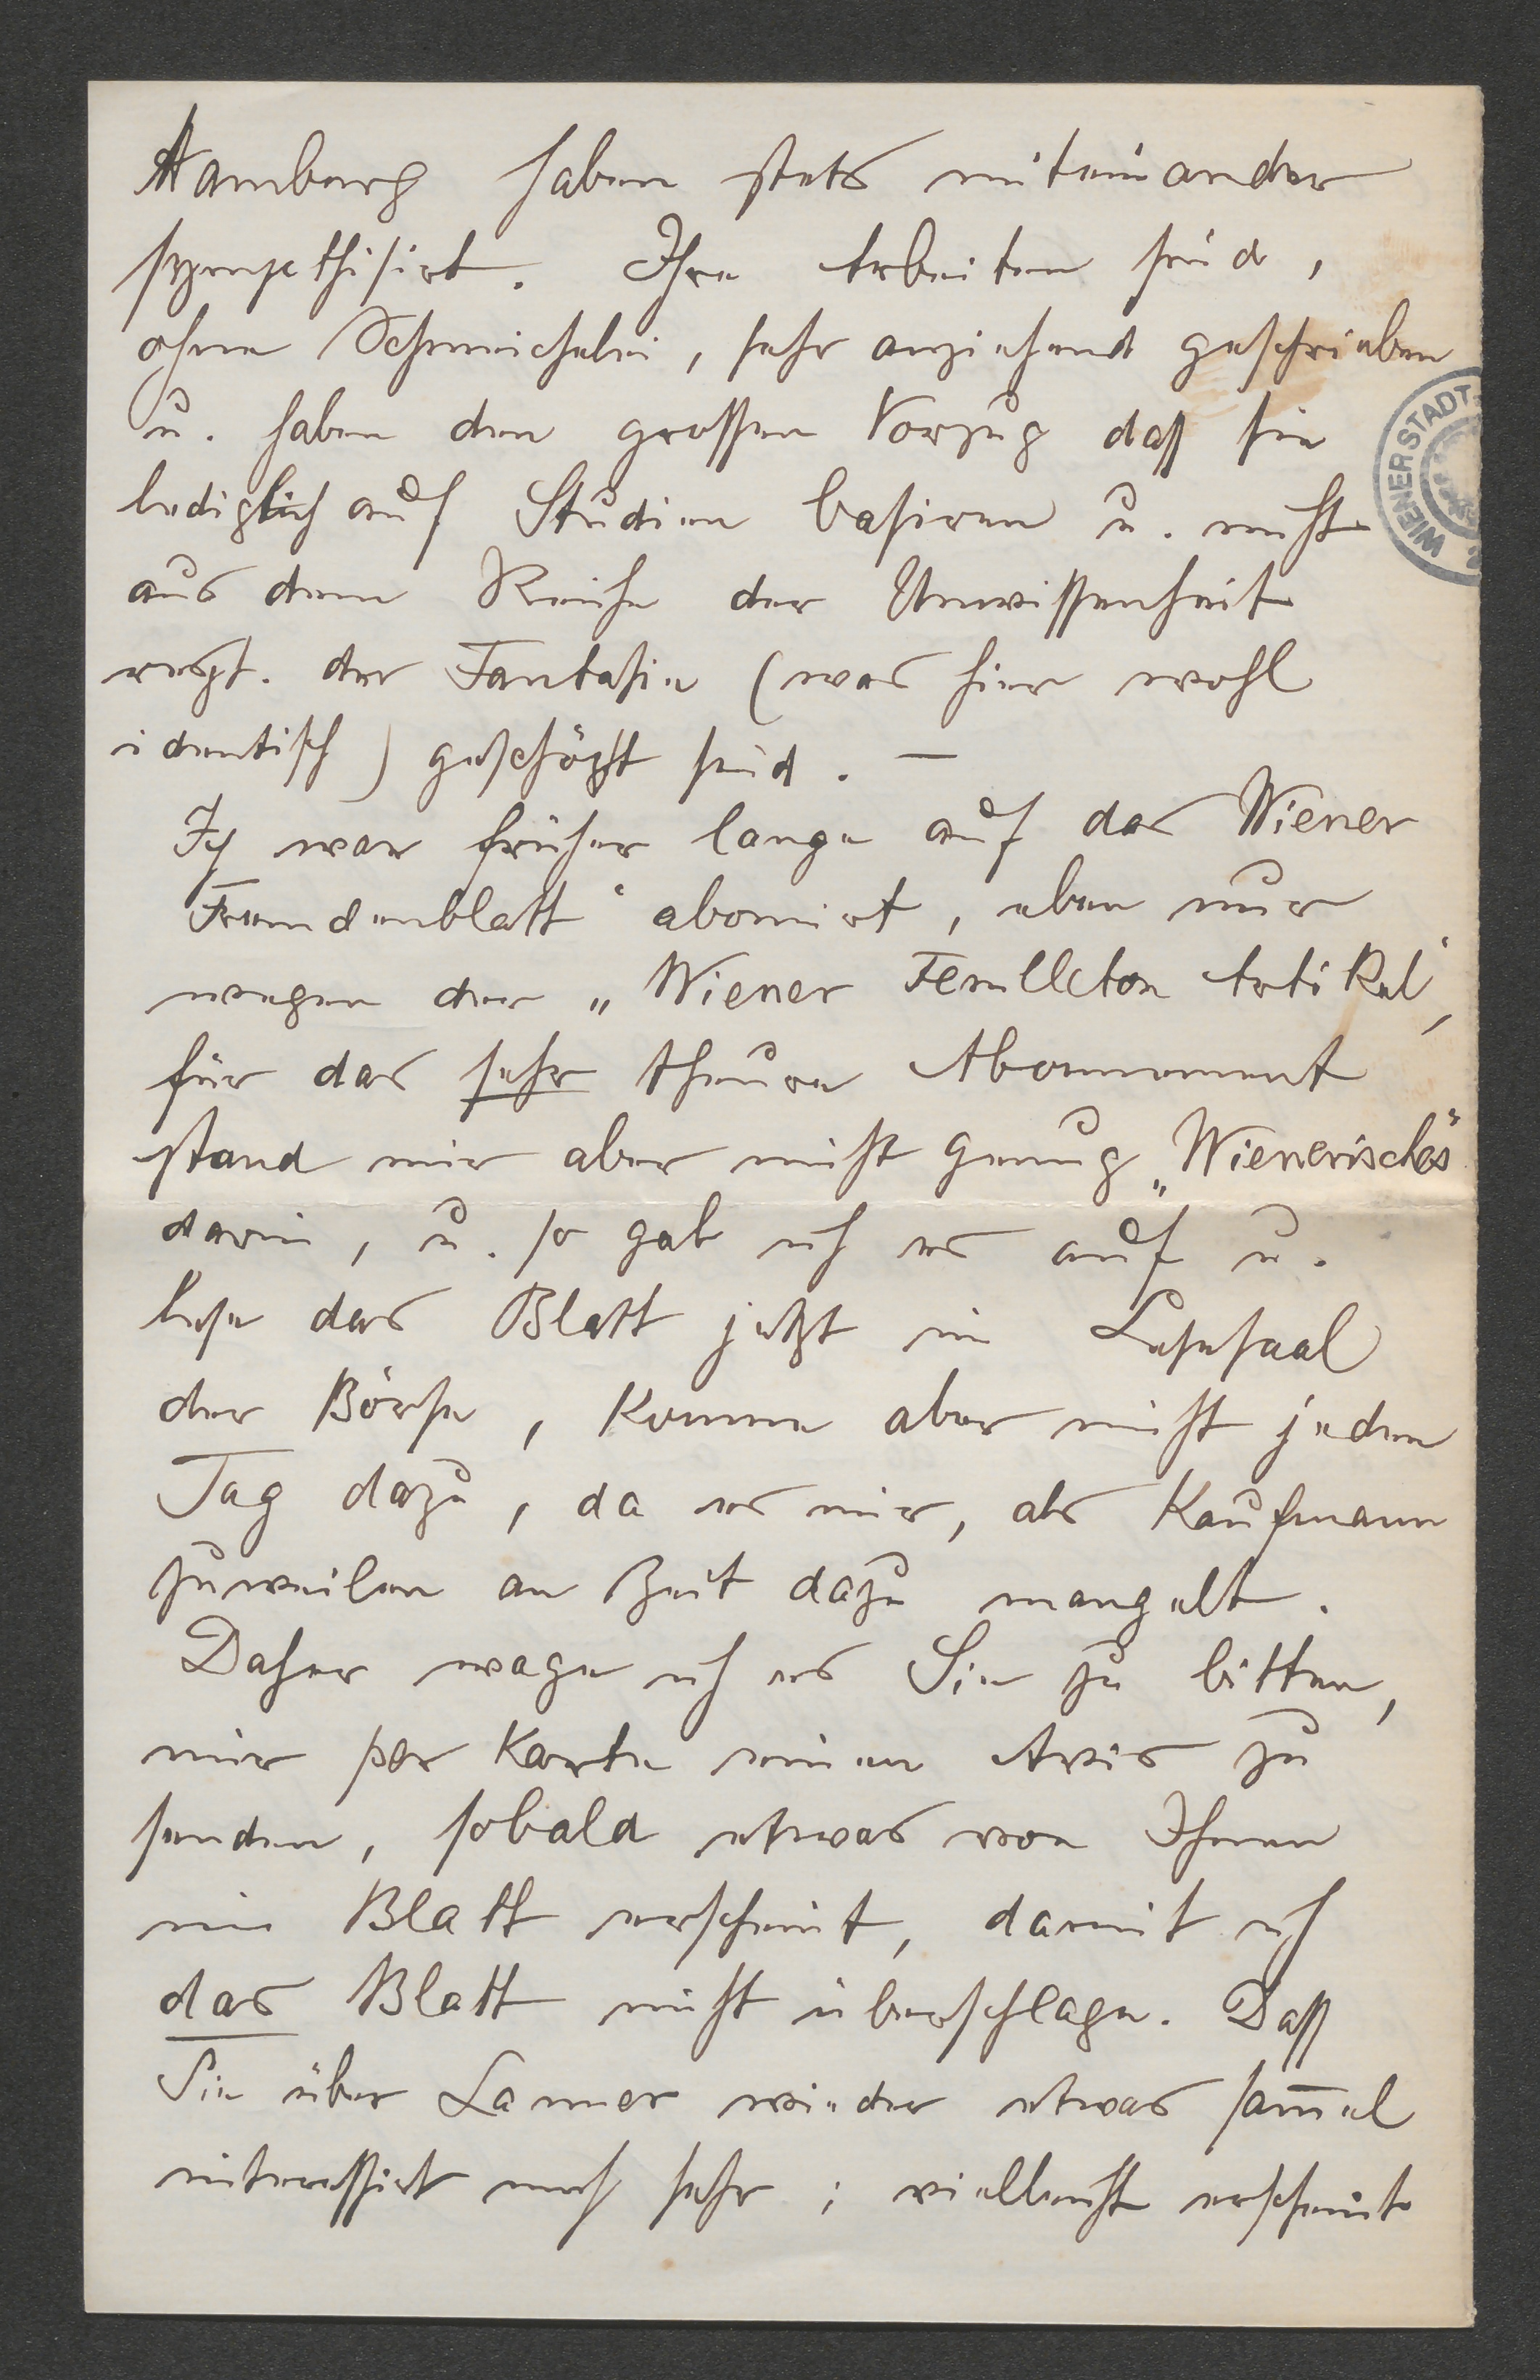 Hamburg haben stets miteinander
sympathisirt. Ihre Arbeiten sind,
ohne Schmeichelei, sehr anziehend geschrieben
u. haben den grossen Vorzug daß sie
lediglich auf Studien basiren u. nicht
aus dem Reiche der Unwissenheit
respt. der Fantasie (was hier wohl
identisch) geschöpft sind. —
Ich war früher lange auf das Wiener
Fremdenblatt" abonirt, eben nur
wegen der „Wiener Feuilleton Artikel",
für das sehr theure Abonnement
stand mir aber nicht genug „Wienerisches"
darin, u. so gab ich es auf u.
lese das Blatt jetzt im Lesesaal
der Börse, komme aber nicht jeden
Tag dazu, da es mir, als Kaufmann
zuweilen an Zeit dazu mangelt.
Daher wage ich es Sie zu bitten,
mir per Karte einen Avis zu
senden, sobald etwas von Ihnen
im Blatt erscheint, damit ich
das Blatt nicht überschlage. Daß
Sie über Lanner wieder etwas sam̅el
interessirt mich sehr; vielleicht erscheint
WIENER STADT-